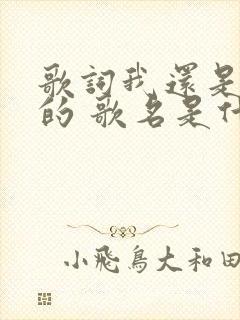 歌詞我還是
的 歌名是什
小飛鳥大和田